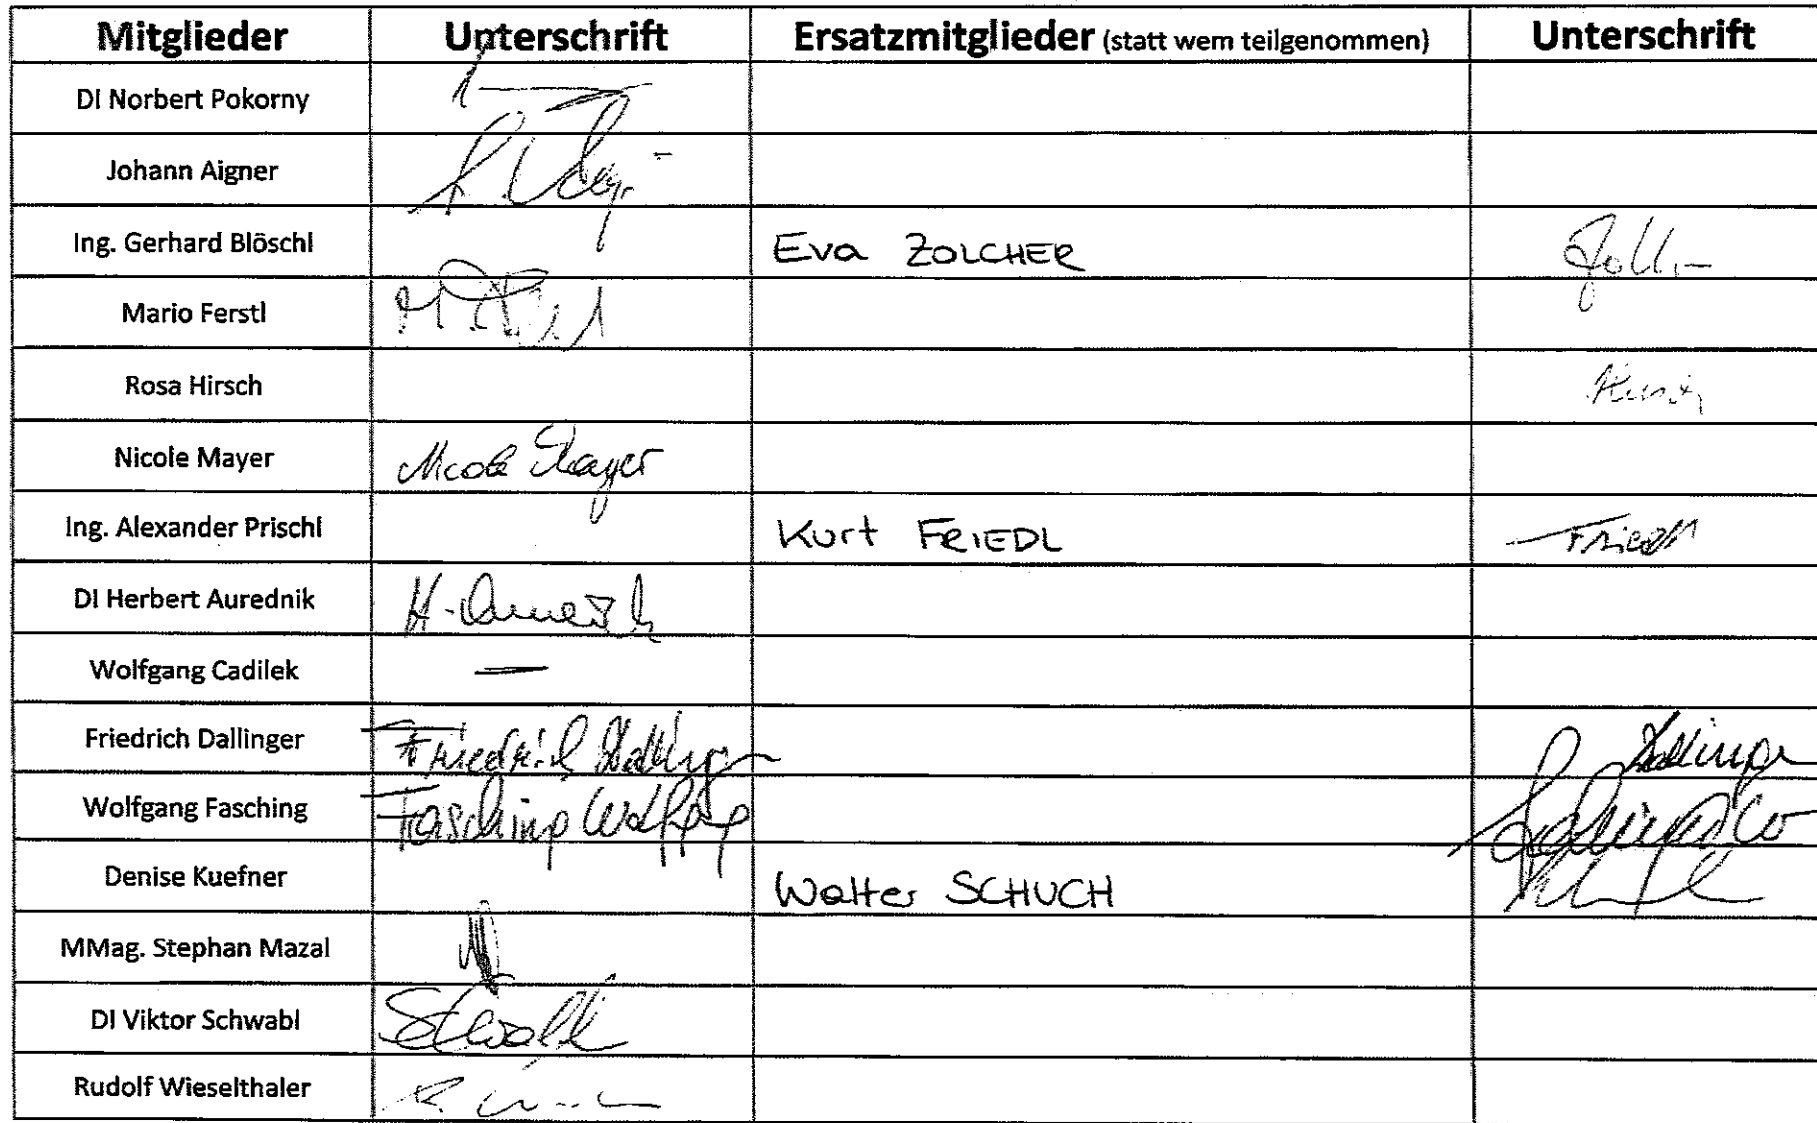 Mitglieder Unterschrift Ersatzmitglieder (statt wem teilgenommen) Unterschrift
DI Norbert Pokorny
Johann Aigner
Ing. Gerhard Blöschl Eva ZOLCHER
Mario Ferstl
Rosa Hirsch
Nicole Mayer Nicole Mayer
Ing. Alexander Prischl Kurt FRIEDL Friedl
DI Herbert Aurednik
Wolfgang Cadilek —
Friedrich Dallinger Friedrich Dallinger Dallinger
Wolfgang Fasching Fasching Wolfgang
Denise Kuefner Walter SCHUCH
MMag. Stephan Mazal
DI Viktor Schwabl Schwabl
Rudolf Wieselthaler